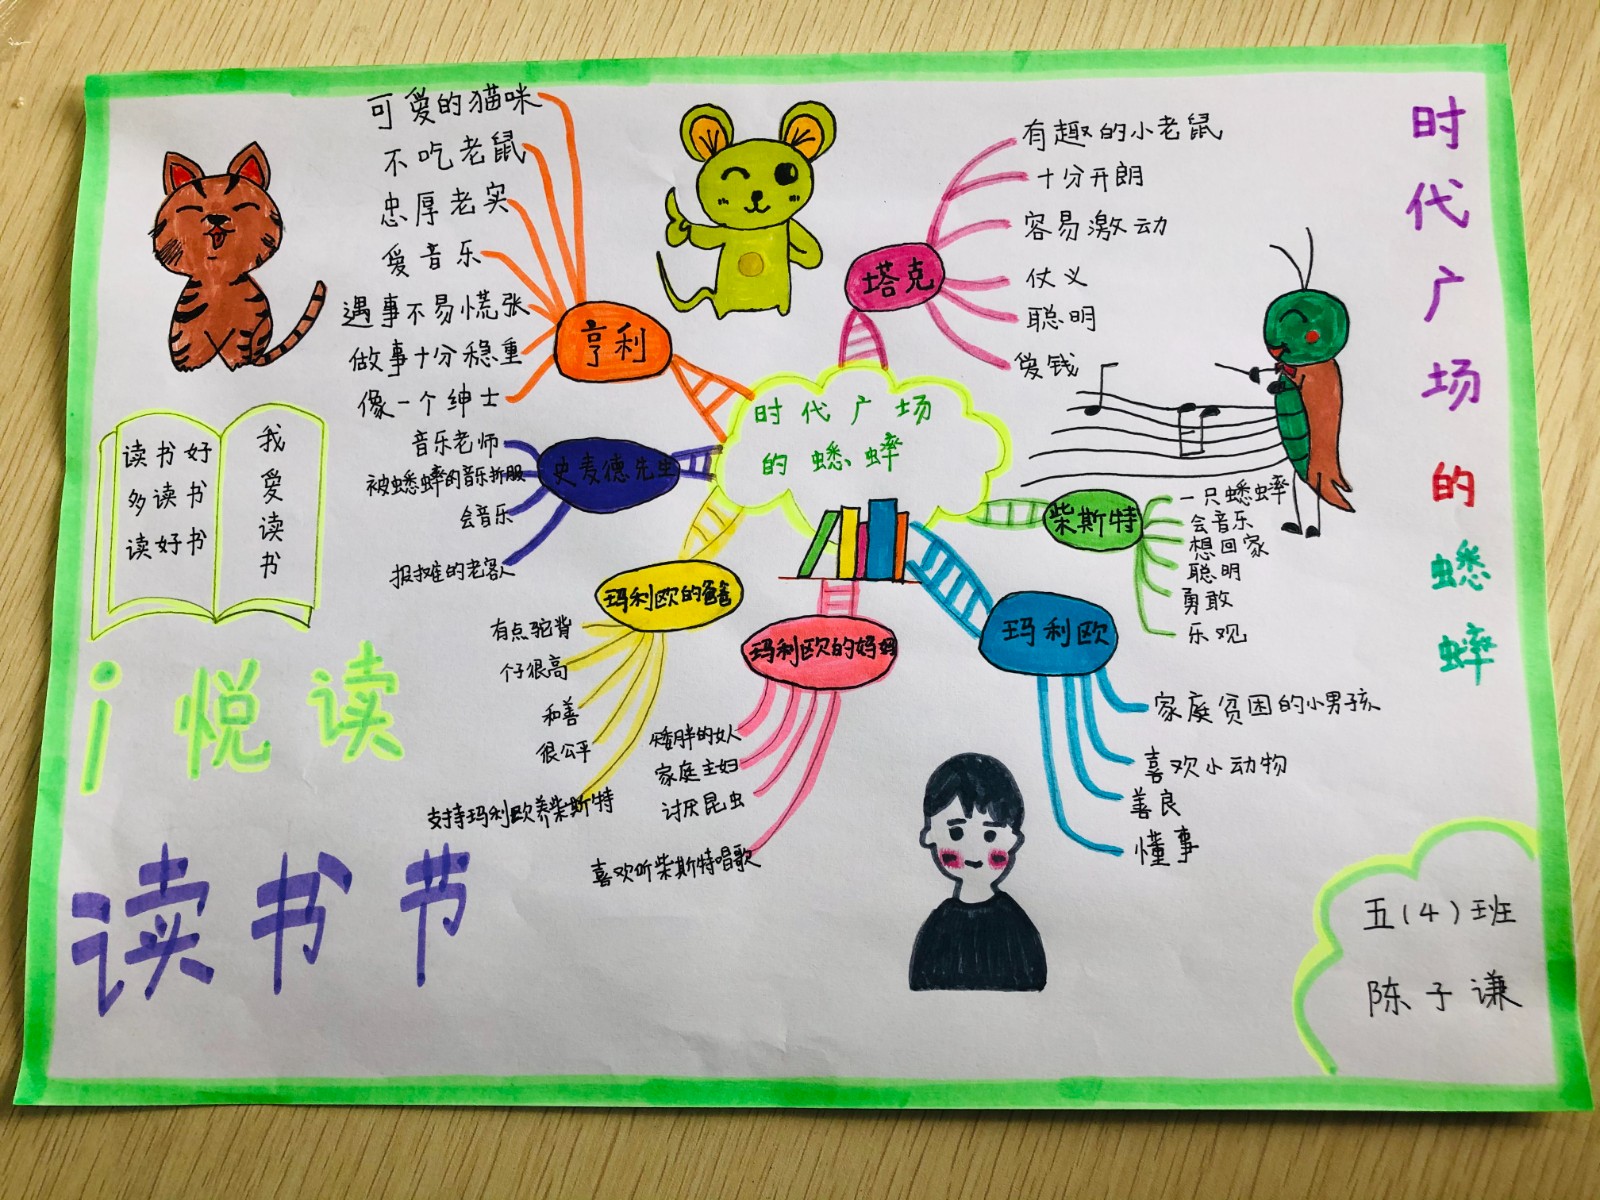 时代广场的蟋蟀
时代广场
的蟋蟀
亨利
可爱的猫咪
不吃老鼠
忠厚老实
爱音乐
遇事不易慌张
做事十分稳重
像一个绅士
塔克
有趣的小老鼠
十分开朗
容易激动
仗义
聪明
爱钱
史麦德先生
音乐老师
被蟋蟀的音乐折服
会音乐
报摊的老客人
柴斯特
一只蟋蟀
会音乐
想回家
聪明
勇敢
乐观
玛利欧的爸爸
有点驼背
个子很高
和善
很公平
支持玛利欧养柴斯特
玛利欧的妈妈
矮胖的女人
家庭主妇
讨厌昆虫
喜欢听柴斯特唱歌
玛利欧
家庭贫困的小男孩
喜欢小动物
善良
懂事
读书好
多读书
读好书
我爱读书
i悦读
读书节
五(4)班
陈子谦